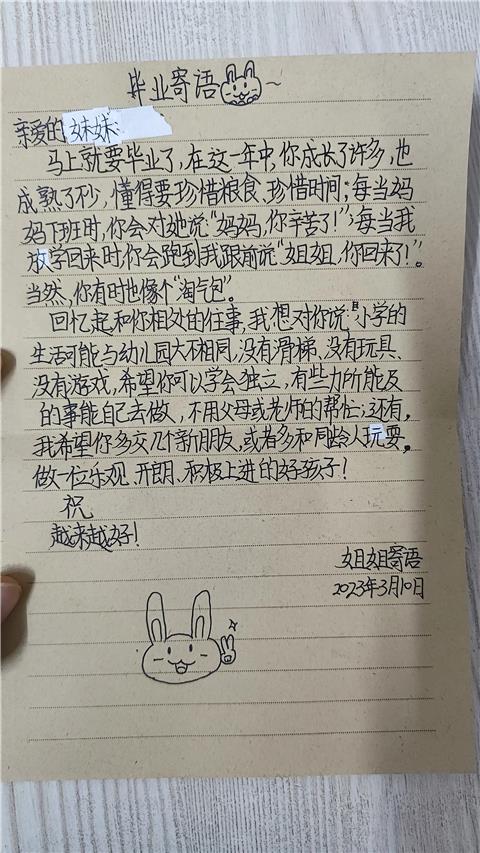 毕业寄语～
亲爱的妹妹：
马上就要毕业了，在这一年中，你成长了许多，也
成熟了不少，懂得要珍惜粮食、珍惜时间；每当妈
妈下班时，你会对她说“妈妈，你辛苦了！”；每当我
放学回来时你会跑到我跟前说“姐姐，你回来了！”。
当然，你有时也像个“淘气包”。
回忆起和你相处的往事，我想对你说：“小学的
生活可能与幼儿园大不相同，没有滑梯、没有玩具、
没有游戏，希望你可以学会独立，有些力所能及
的事能自己去做，不用父母或老师的帮忙；还有，
我希望你多交几个新朋友，或者多和同龄人玩耍。
做一位乐观、开朗、积极上进的好孩子！
祝
越来越好！
姐姐寄语
2023年3月10日